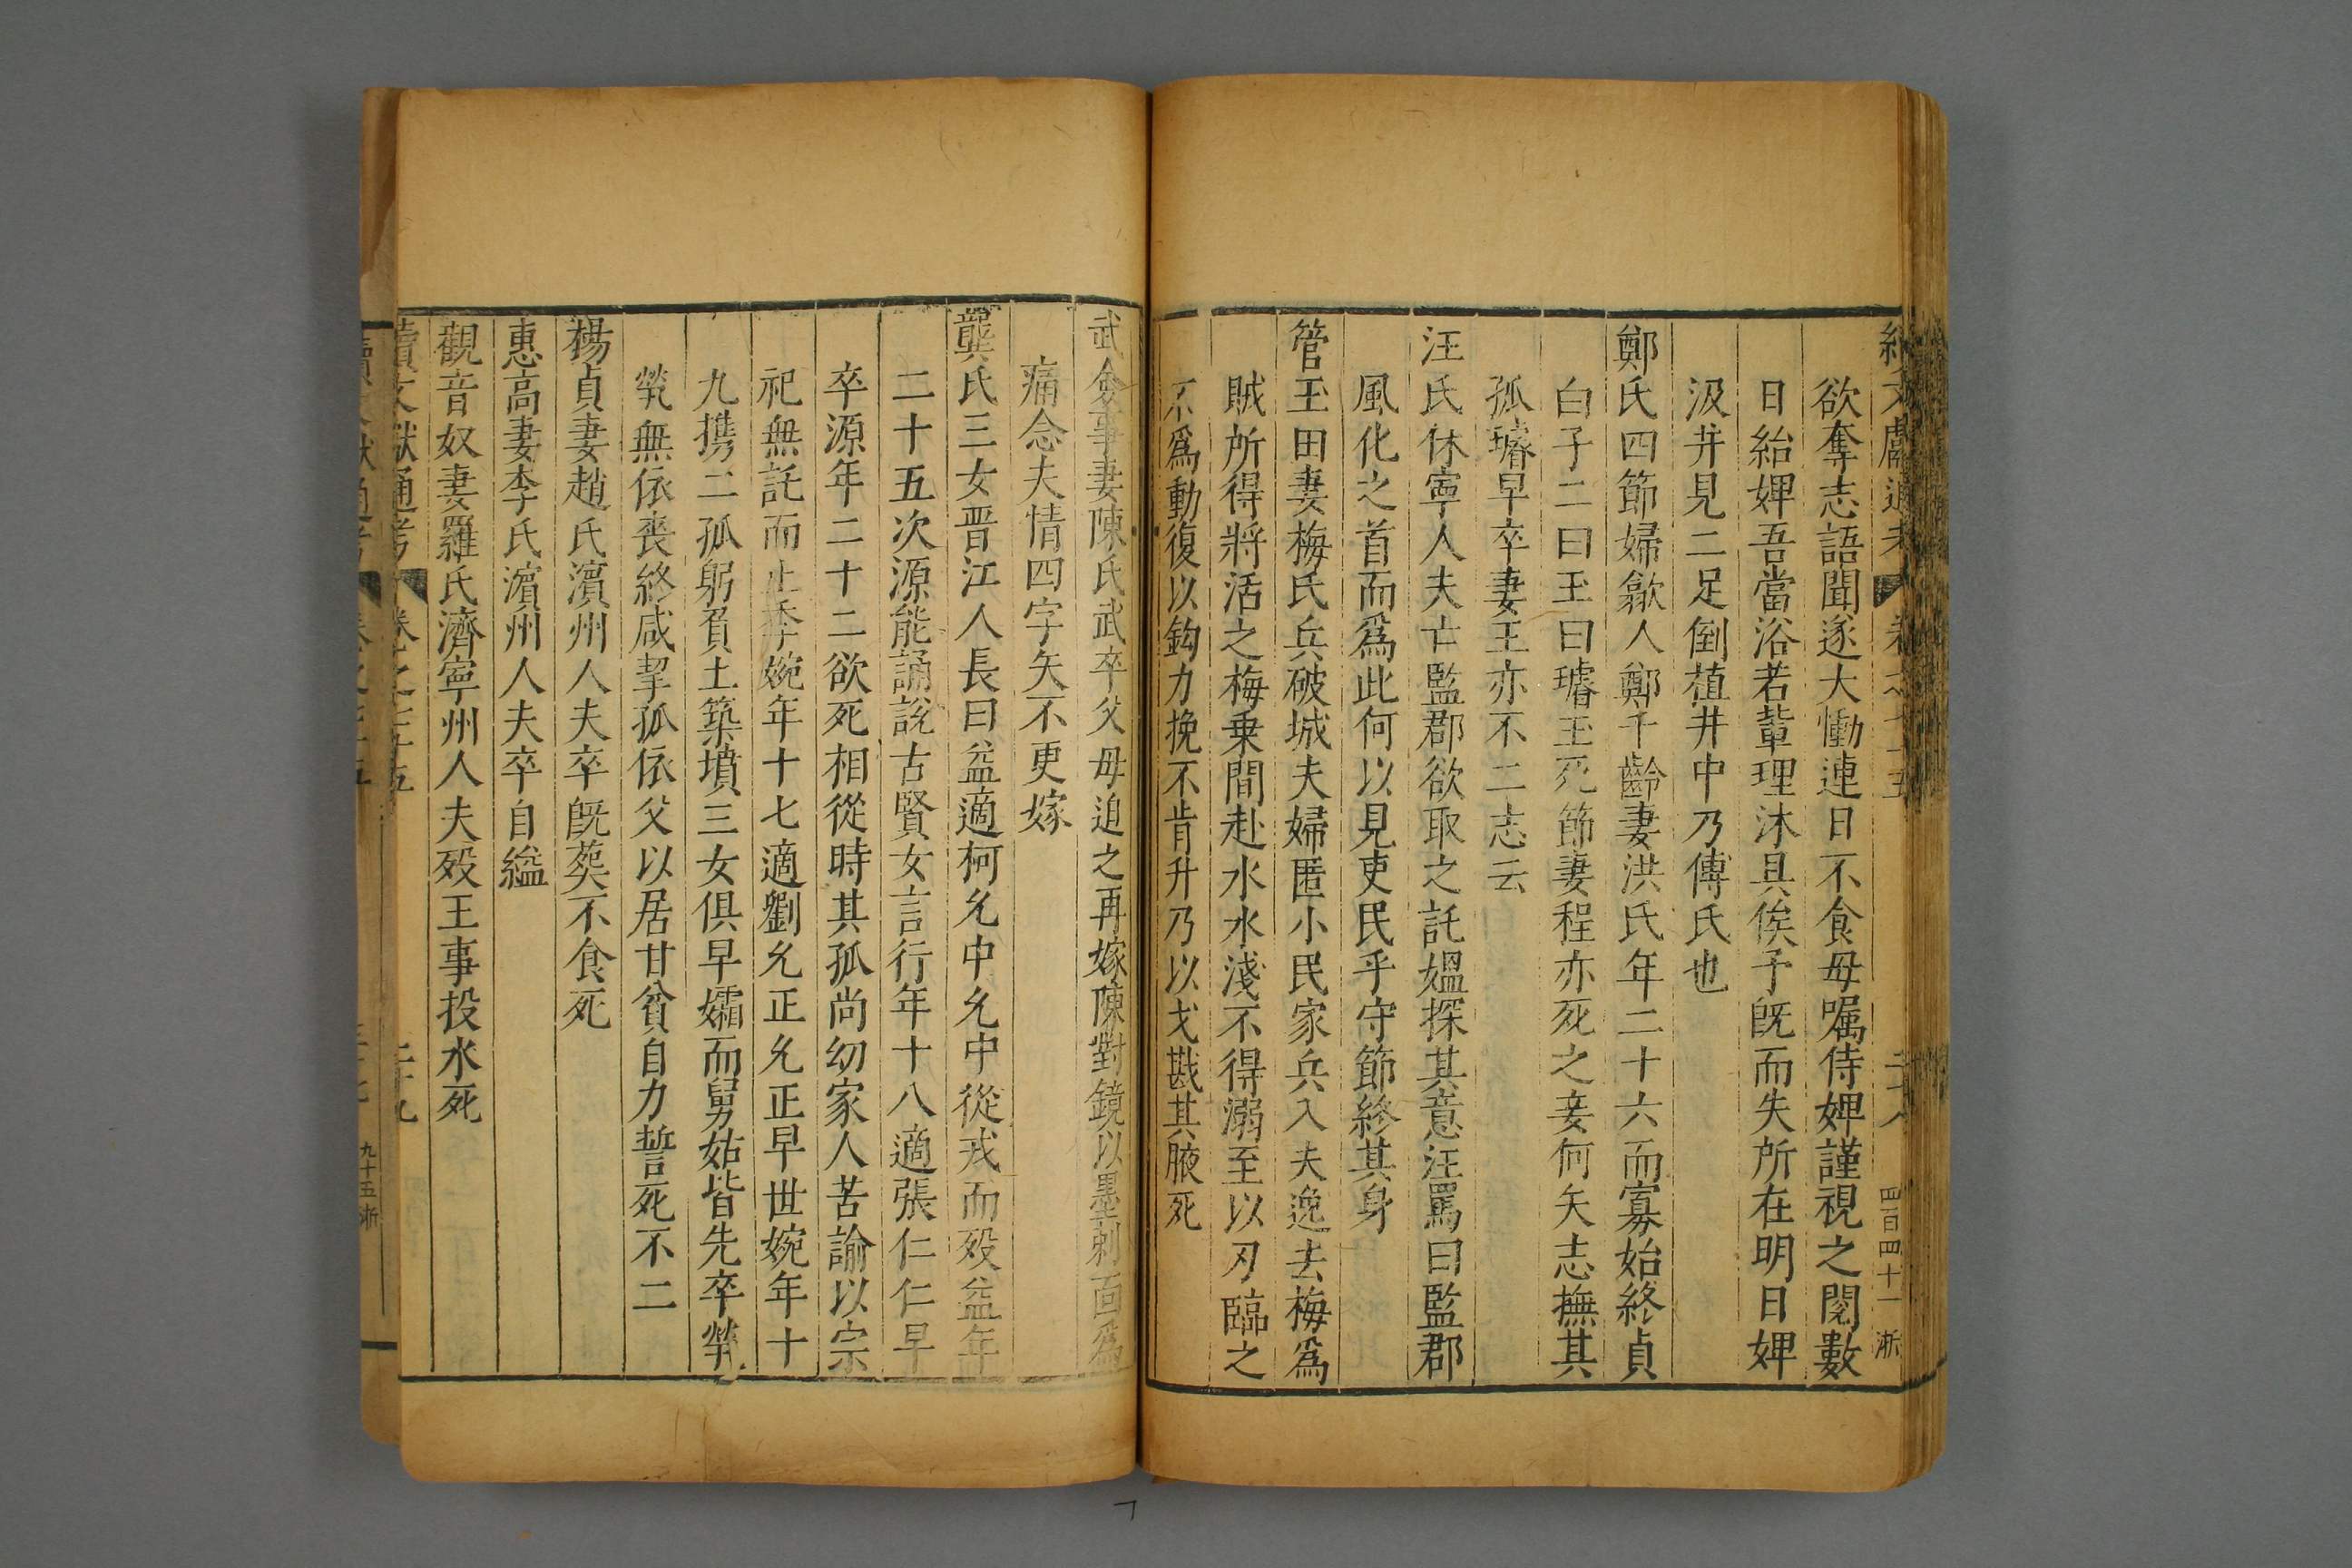 欲奪志語聞遂大慟連日不食母囑侍婢謹視之閱數
日紿婢吾當浴若輩理沐具俟予旣而失所在明日婢
汲井見二足倒植井中乃傳氏也
鄭氏四節婦歙人鄭千齡妻洪氏年二十六而寡始終貞
白子二曰玉曰璿玉死節妻程亦死之妾何矢志撫其
孤璿早卒妻王亦不二志云
汪氏休寧人夫亡監郡欲取之託媼探其意汪罵曰監郡
風化之首而爲此何以見吏民乎守節終其身
管玉田妻梅氏兵破城夫婦匿小民家兵入夫逸去梅爲
賊所得將活之梅乗間赴水水淺不得溺至以刃臨之
不爲動復以鈎力挽不肯升乃以戈戡其腋死
武僉事妻陳氏武卒父母迫之再嫁陳對鏡以墨刺面爲
痛念夫情四字矢不更嫁
龔氏三女晋江人長曰益適柯允中允中從戎而殁益年
二十五次源能誦說古賢女言行年十八適張仁仁早
卒源年二十二欲死相從時其孤尚幼家人苦諭以宗
祀無託而止季婉年十七適劉允正允正早世婉年十
九携二孤躬負土築墳三女俱早孀而舅姑皆先卒煢
煢無依喪終咸挈孤依父以居甘貧自力誓死不二
楊貞妻趙氏濵州人夫卒旣葬不食死
惠高妻李氏濵州人夫卒自縊
觀音奴妻羅氏濟寧州人夫殁王事投水死
續文獻通考 卷之七十五 二十九
九十五 浙